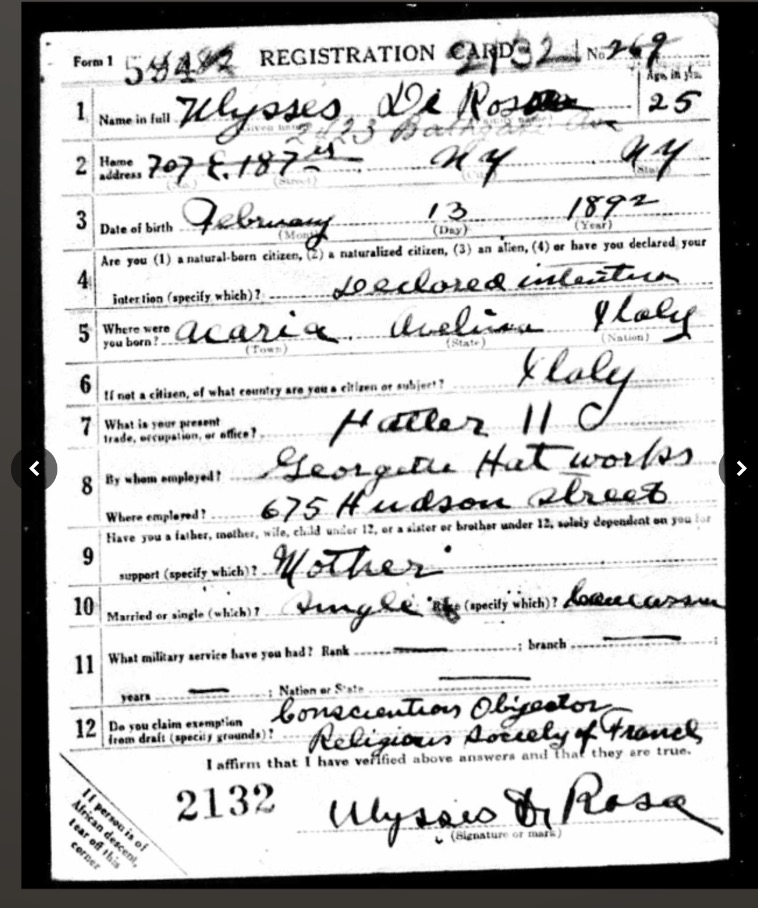 Form 1 REGISTRATION CARD 2132 No. 269
Age, in yrs.
1 Name in full Ulysses Di Rosa 25
(Given name) (Family name)
2423 Bathgate Ave
2 Home address 707 E. 187 St N Y N Y
(No.) (Street) (City) (State)
3 Date of birth February 13 1892
(Month) (Day) (Year)
Are you (1) a natural-born citizen, (2) a naturalized citizen, (3) an alien, (4) or have you declared your
4 intention (specify which)? Declared intention
5 Where were you born? Italy
(Town) (State) (Nation)
6 If not a citizen, of what country are you a citizen or subject? Italy
7 What is your present trade, occupation, or office? Hatter 11
8 By whom employed? Georgette Hat works
Where employed? 675 Hudson street
Have you a father, mother, wife, child under 12, or a sister or brother under 12, solely dependent on you for
9 support (specify which)? Mother
10 Married or single (which)? Single Race (specify which)? Caucassian
11 What military service have you had? Rank ; branch ;
years ; Nation or State
Conscientious Objector
12 Do you claim exemption from draft (specify grounds)? Religious Society of
I affirm that I have verified above answers and that they are true.
2132
Ulysses Di Rosa
(Signature or mark)
If person is of
African descent,
tear off this
corner